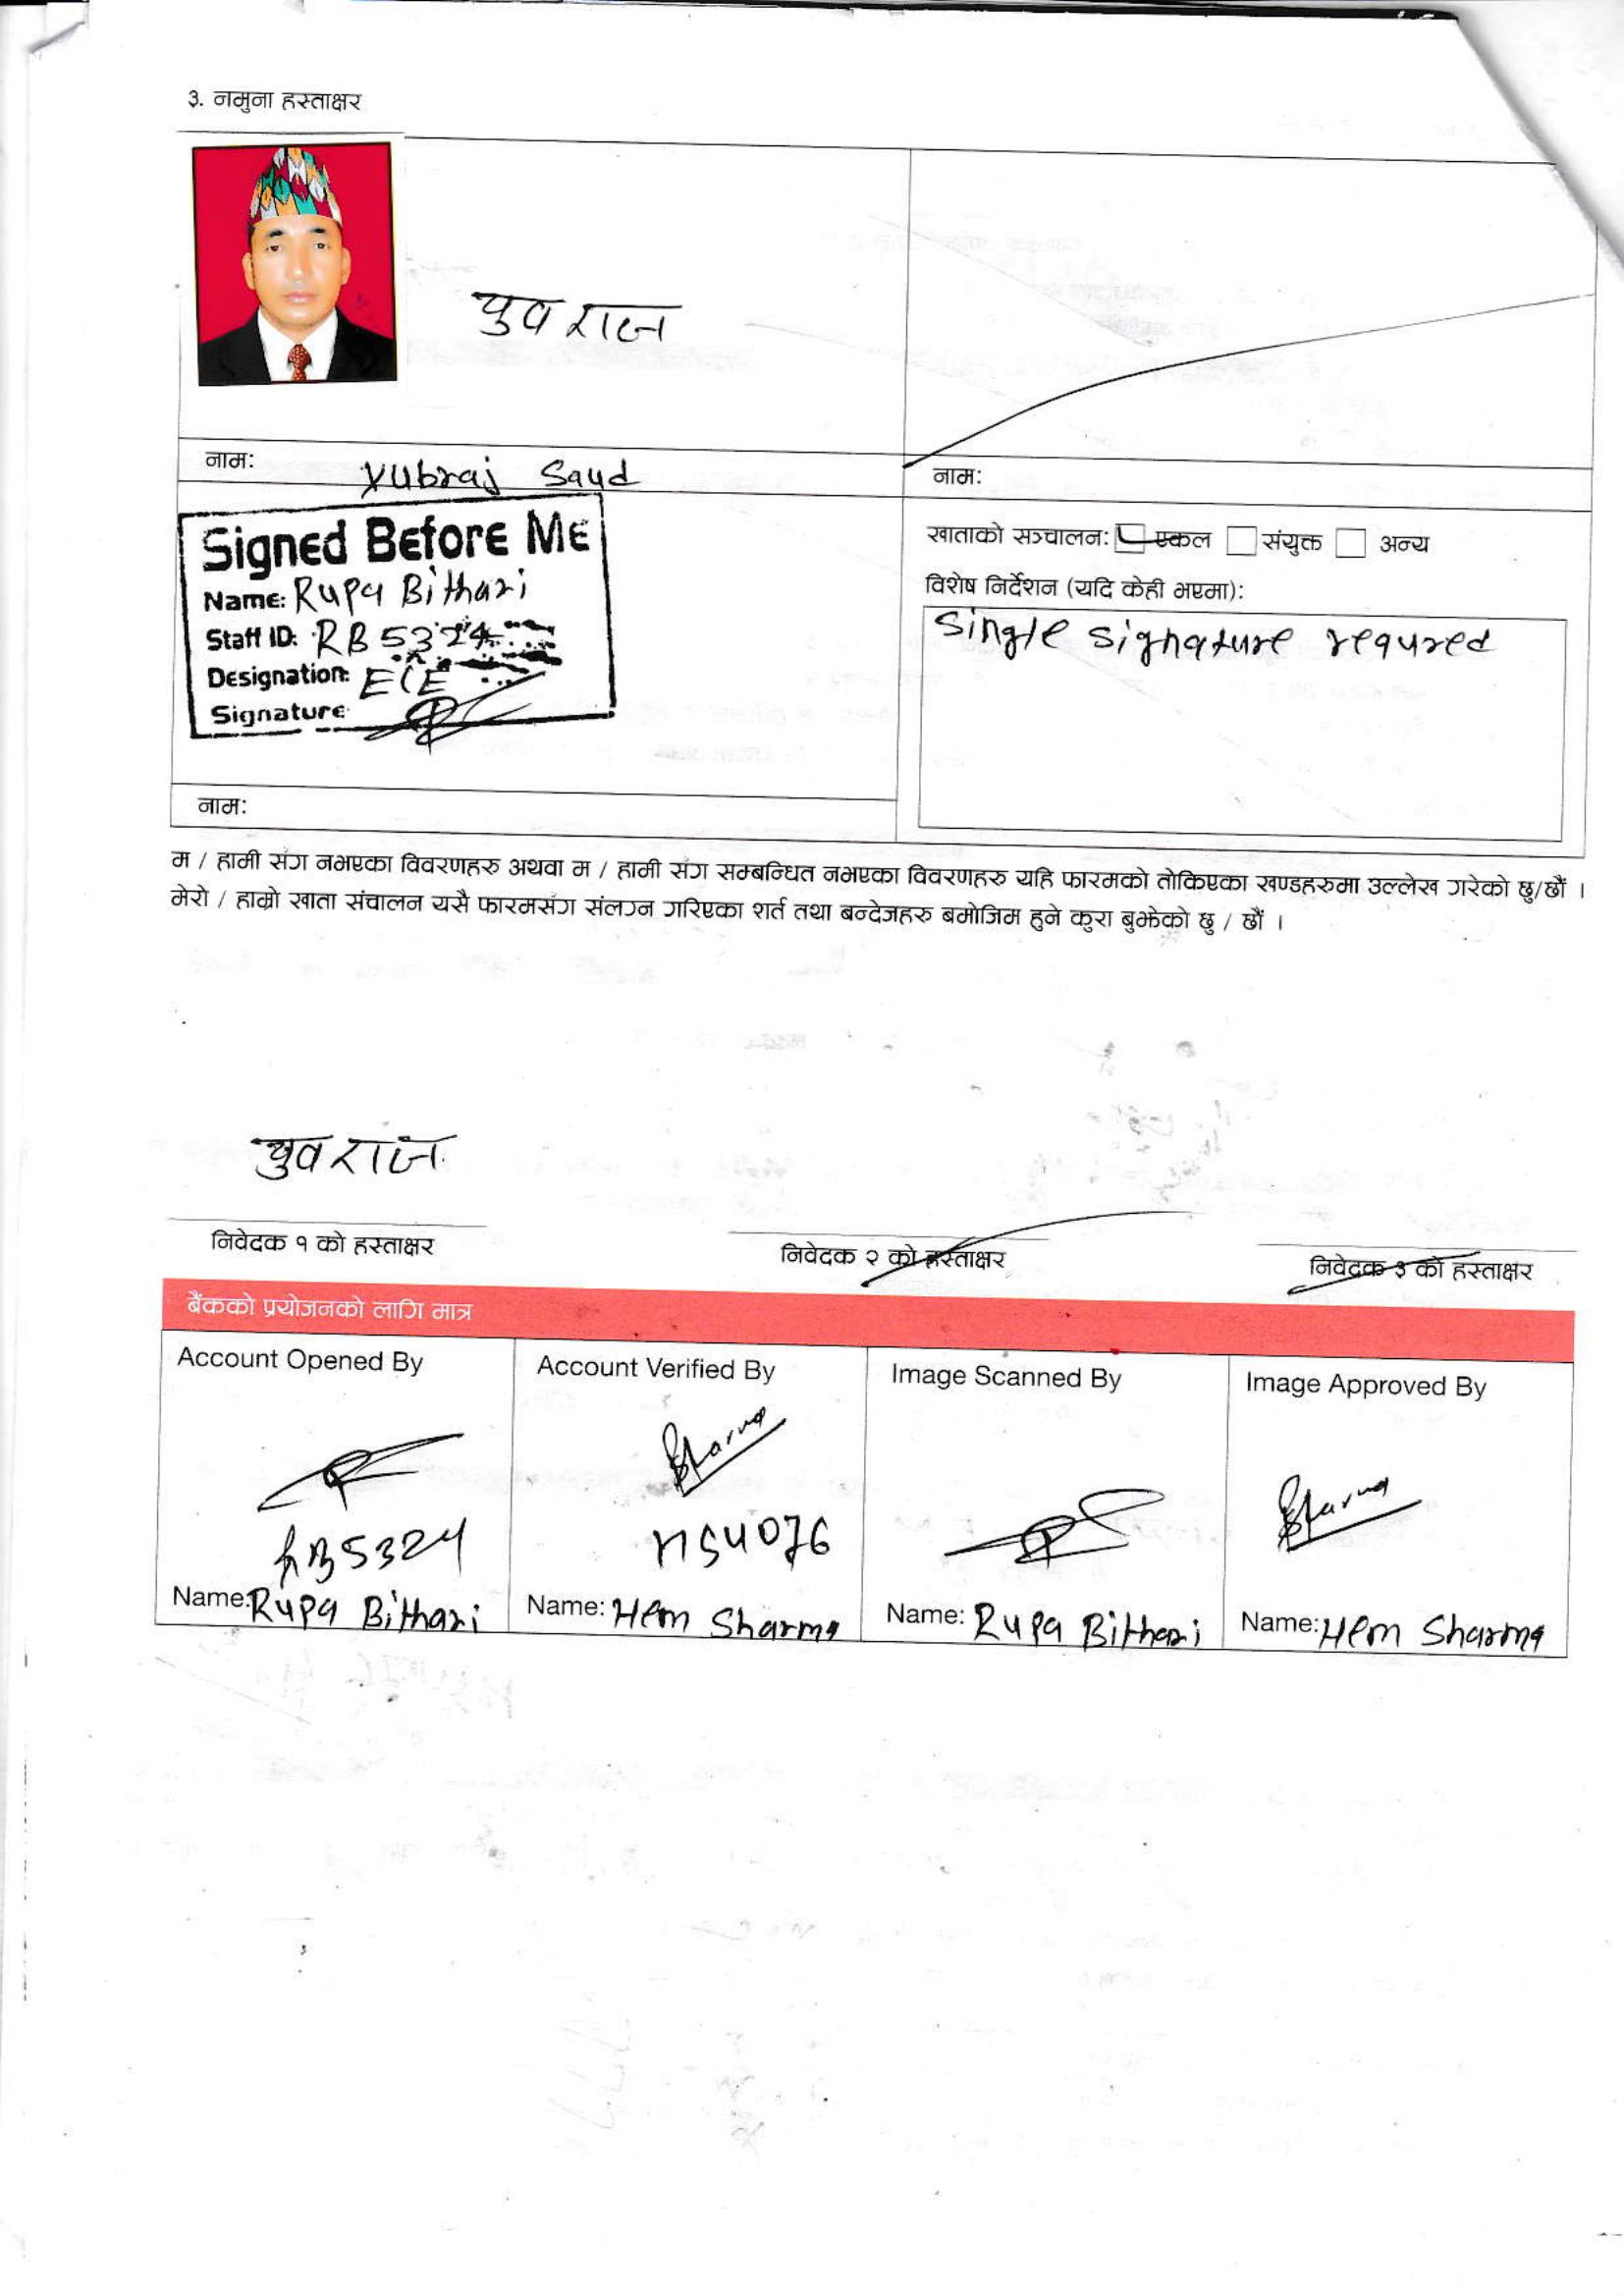 ३. नमुना हस्ताक्षर
युवराज
नाम: Yubraj Saud
नाम:
Signed Before Me
Name: Rupa Bithari
Staff ID: RB5324
Designation:
Signature:
नाम:
खाताको सञ्चालन: एकल संयुक्त अन्य
विशेष निर्देशन (यदि केही भएमा):
Single signature requred
म / हामी संग नभएका विवरणहरु अथवा म / हामी संग सम्बन्धित नभएका विवरणहरु यहि फारमको तोकिएका खण्डहरुमा उल्लेख गरेको छु/छौं ।
मेरो / हाम्रो खाता संचालन यसै फारमसंग संलग्न गरिएका शर्त तथा बन्देजहरु बमोजिम हुने कुरा बुझेको छु / छौं ।
युवराज
निवेदक १ को हस्ताक्षर
निवेदक २ को हस्ताक्षर
निवेदक ३ को हस्ताक्षर
बैंकको प्रयोजनको लागि मात्र
Account Opened By
RB5324
Name: Rupa Bithari
Account Verified By
Sharma
HS4076
Name: Hem Sharma
Image Scanned By
Name: Rupa Bithari
Image Approved By
Sharma
Name: Hem Sharma